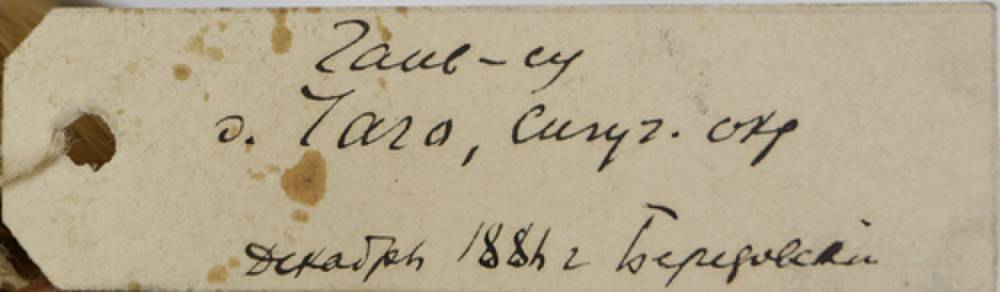 Гань-су
д. Таго, Сигуг. окр
Декабрь 1884 г Березовскій